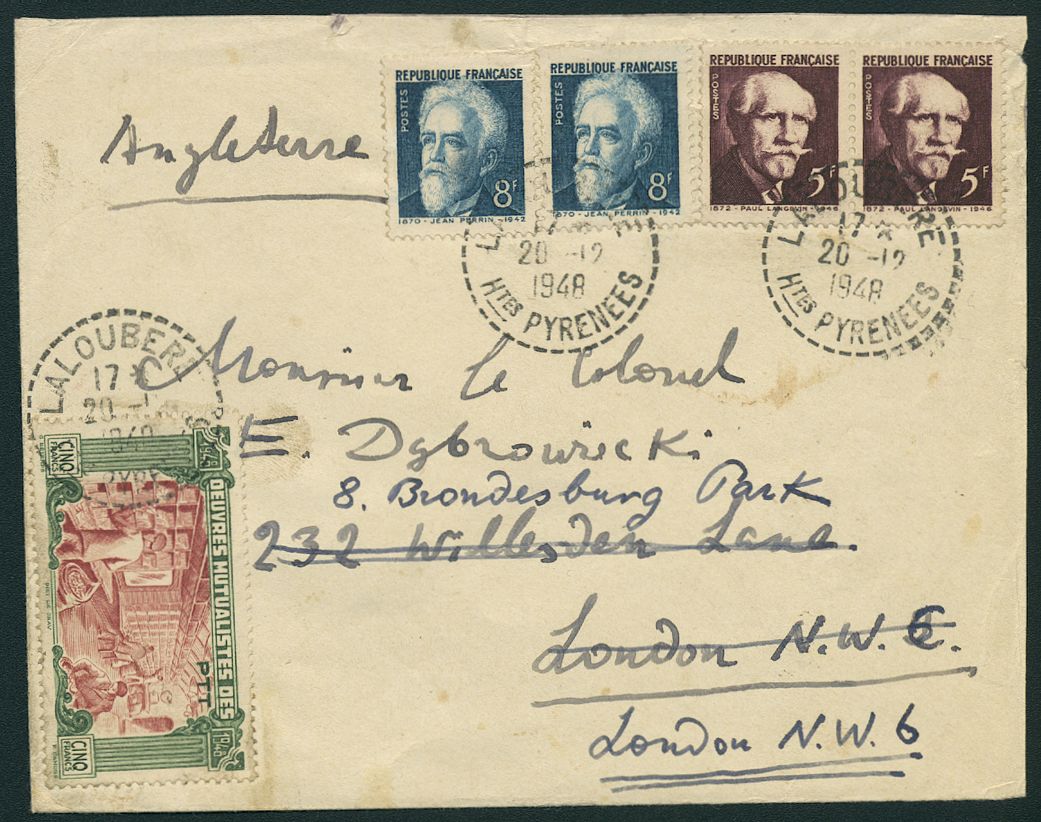 REPUBLIQUE FRANÇAISE
POSTES
8F
1870 - JEAN PERRIN - 1942
REPUBLIQUE FRANÇAISE
POSTES
8F
1870 - JEAN PERRIN - 1942
REPUBLIQUE FRANÇAISE
POSTES
5F
1872 - PAUL LANGEVIN - 1946
REPUBLIQUE FRANÇAISE
POSTES
5F
1872 - PAUL LANGEVIN - 1946
Angleterre
17 *
20 -12
1948
Htes PYRENEES
LALOUBERE
17 *
20 -12
1948
Htes PYRENEES
LALOUBERE
17 *
20 -1
1948
Monsieur le Colonel
E. Dąbrowiecki
8. Brondesbury Park
232 Willesden Lane.
London N.W. 6.
London N.W. 6
1940
CINQ
FRANCS
OEUVRES MUTUALISTES DES
PTT
1940
CINQ
FRANCS